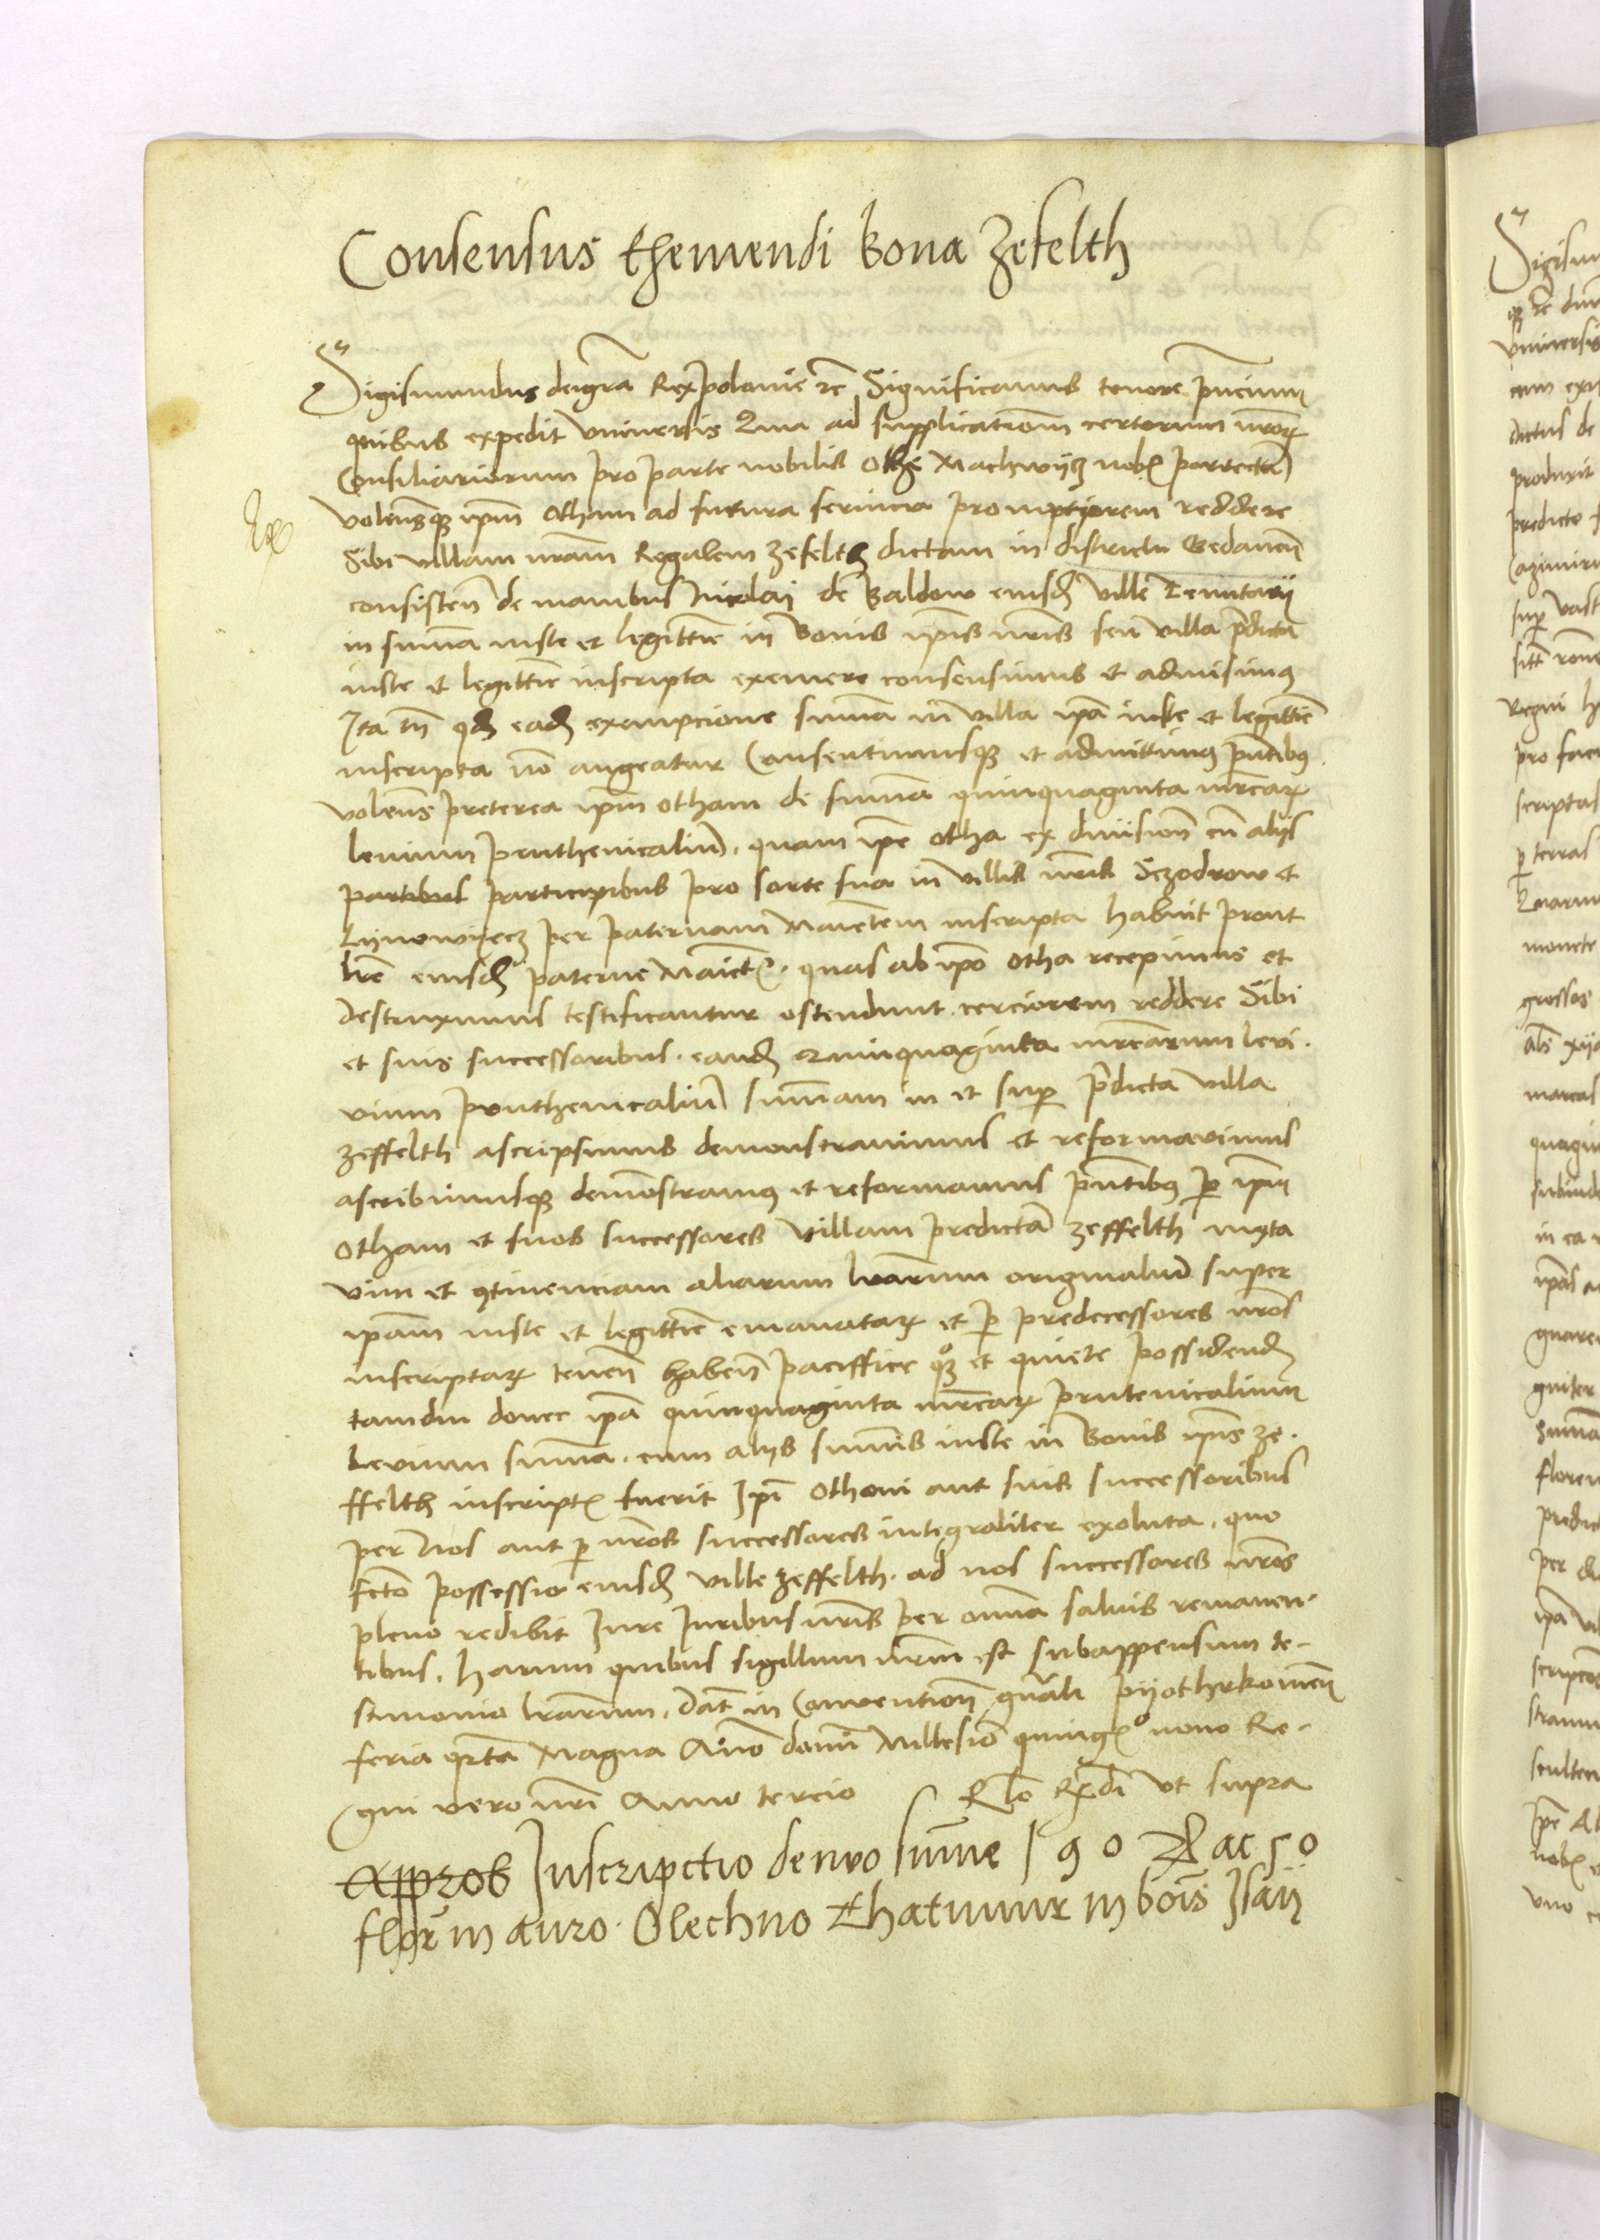 Consensus themendi bona Zefelth
Sigismundus dei gra Rex polonie etc Significamus tenore pncium
quibus expedit vniuersis Qm ad supplicationem certorum nrorum
Consiliariorum pro parte nobilis Othe Machwijcz nobis porrectam
volensque ipm Otham ad futura seruicia promptiorem reddere
Sibi villam nram Regalem Zefelth dictam in districtu Gedanen
consisten de manibus Nicolai de Baldow eiusd ville Tenutarij
in summa iuste et legittime in bonis ipis nris seu villa pdicta
iuste et legittime inscripta exemere consensimus et admisimus
Ita tn qd ead exempcione summa in villa ipa iuste et legittime
inscripta no augeatur Consentimusque et admittimus pntibus
volens preterea ipm Otham de summa quinquaginta mrcarum
leuium pruthenicalium, quam ipe Otha ex diuision cu alijs
partibus participibus pro sorte sua in villis nris Sczodrow et
Lijnowijecz per paternam Maiestem inscripta habuit prout
lre eiusd paterne Maiest. quas ab ipo Otha recepimus et
destruximus testificantur ostendunt cerciorem reddere Sibi
et suis successoribus. eand quinquaginta mrcarum leui.
uium pruthenicalium summam in et super pdicta villa
Zeffelth ascripsimus demonstrauimus et reformauimus
ascribimusque demonstramus et reformamus pntibus per ipm
Otham et suos successores villam predictam Zeffelth iuxta
vim et continenciam aliarum lrarum originalium super
ipam iuste et legittime emanatarum et per predecessores nros
inscriptarum tenen haben paciffice que et quiete possidend
tamdiu donec ipa quinquaginta mrcarum prutenicalium
leuium summa. cum alijs summis iuste in bonis ipis Ze.
ffelth inscriptis fuerit Ipi Othoni aut suis successoribus
per Nos aut per nros successores integraliter exoluta. quo
fcto possessio eiusd ville Zeffelth. ad nos successores nros
pleno redibit Iure Iuribus nris per omnia saluis remanen.
tibus. Harum quibus sigillum nrm est subappensum te-
stimonio lrarum. dat in Conuention gnali pijothrkouien
feria qrta Magna Anno domi Millesimo quinge nono Re-
gni vero nri Anno tercio Rlo Rdi vt supra
Approb Inscripctio de nuo summe 190 ac 50
flor in auro. Olechno Thatumir in bois Isaij